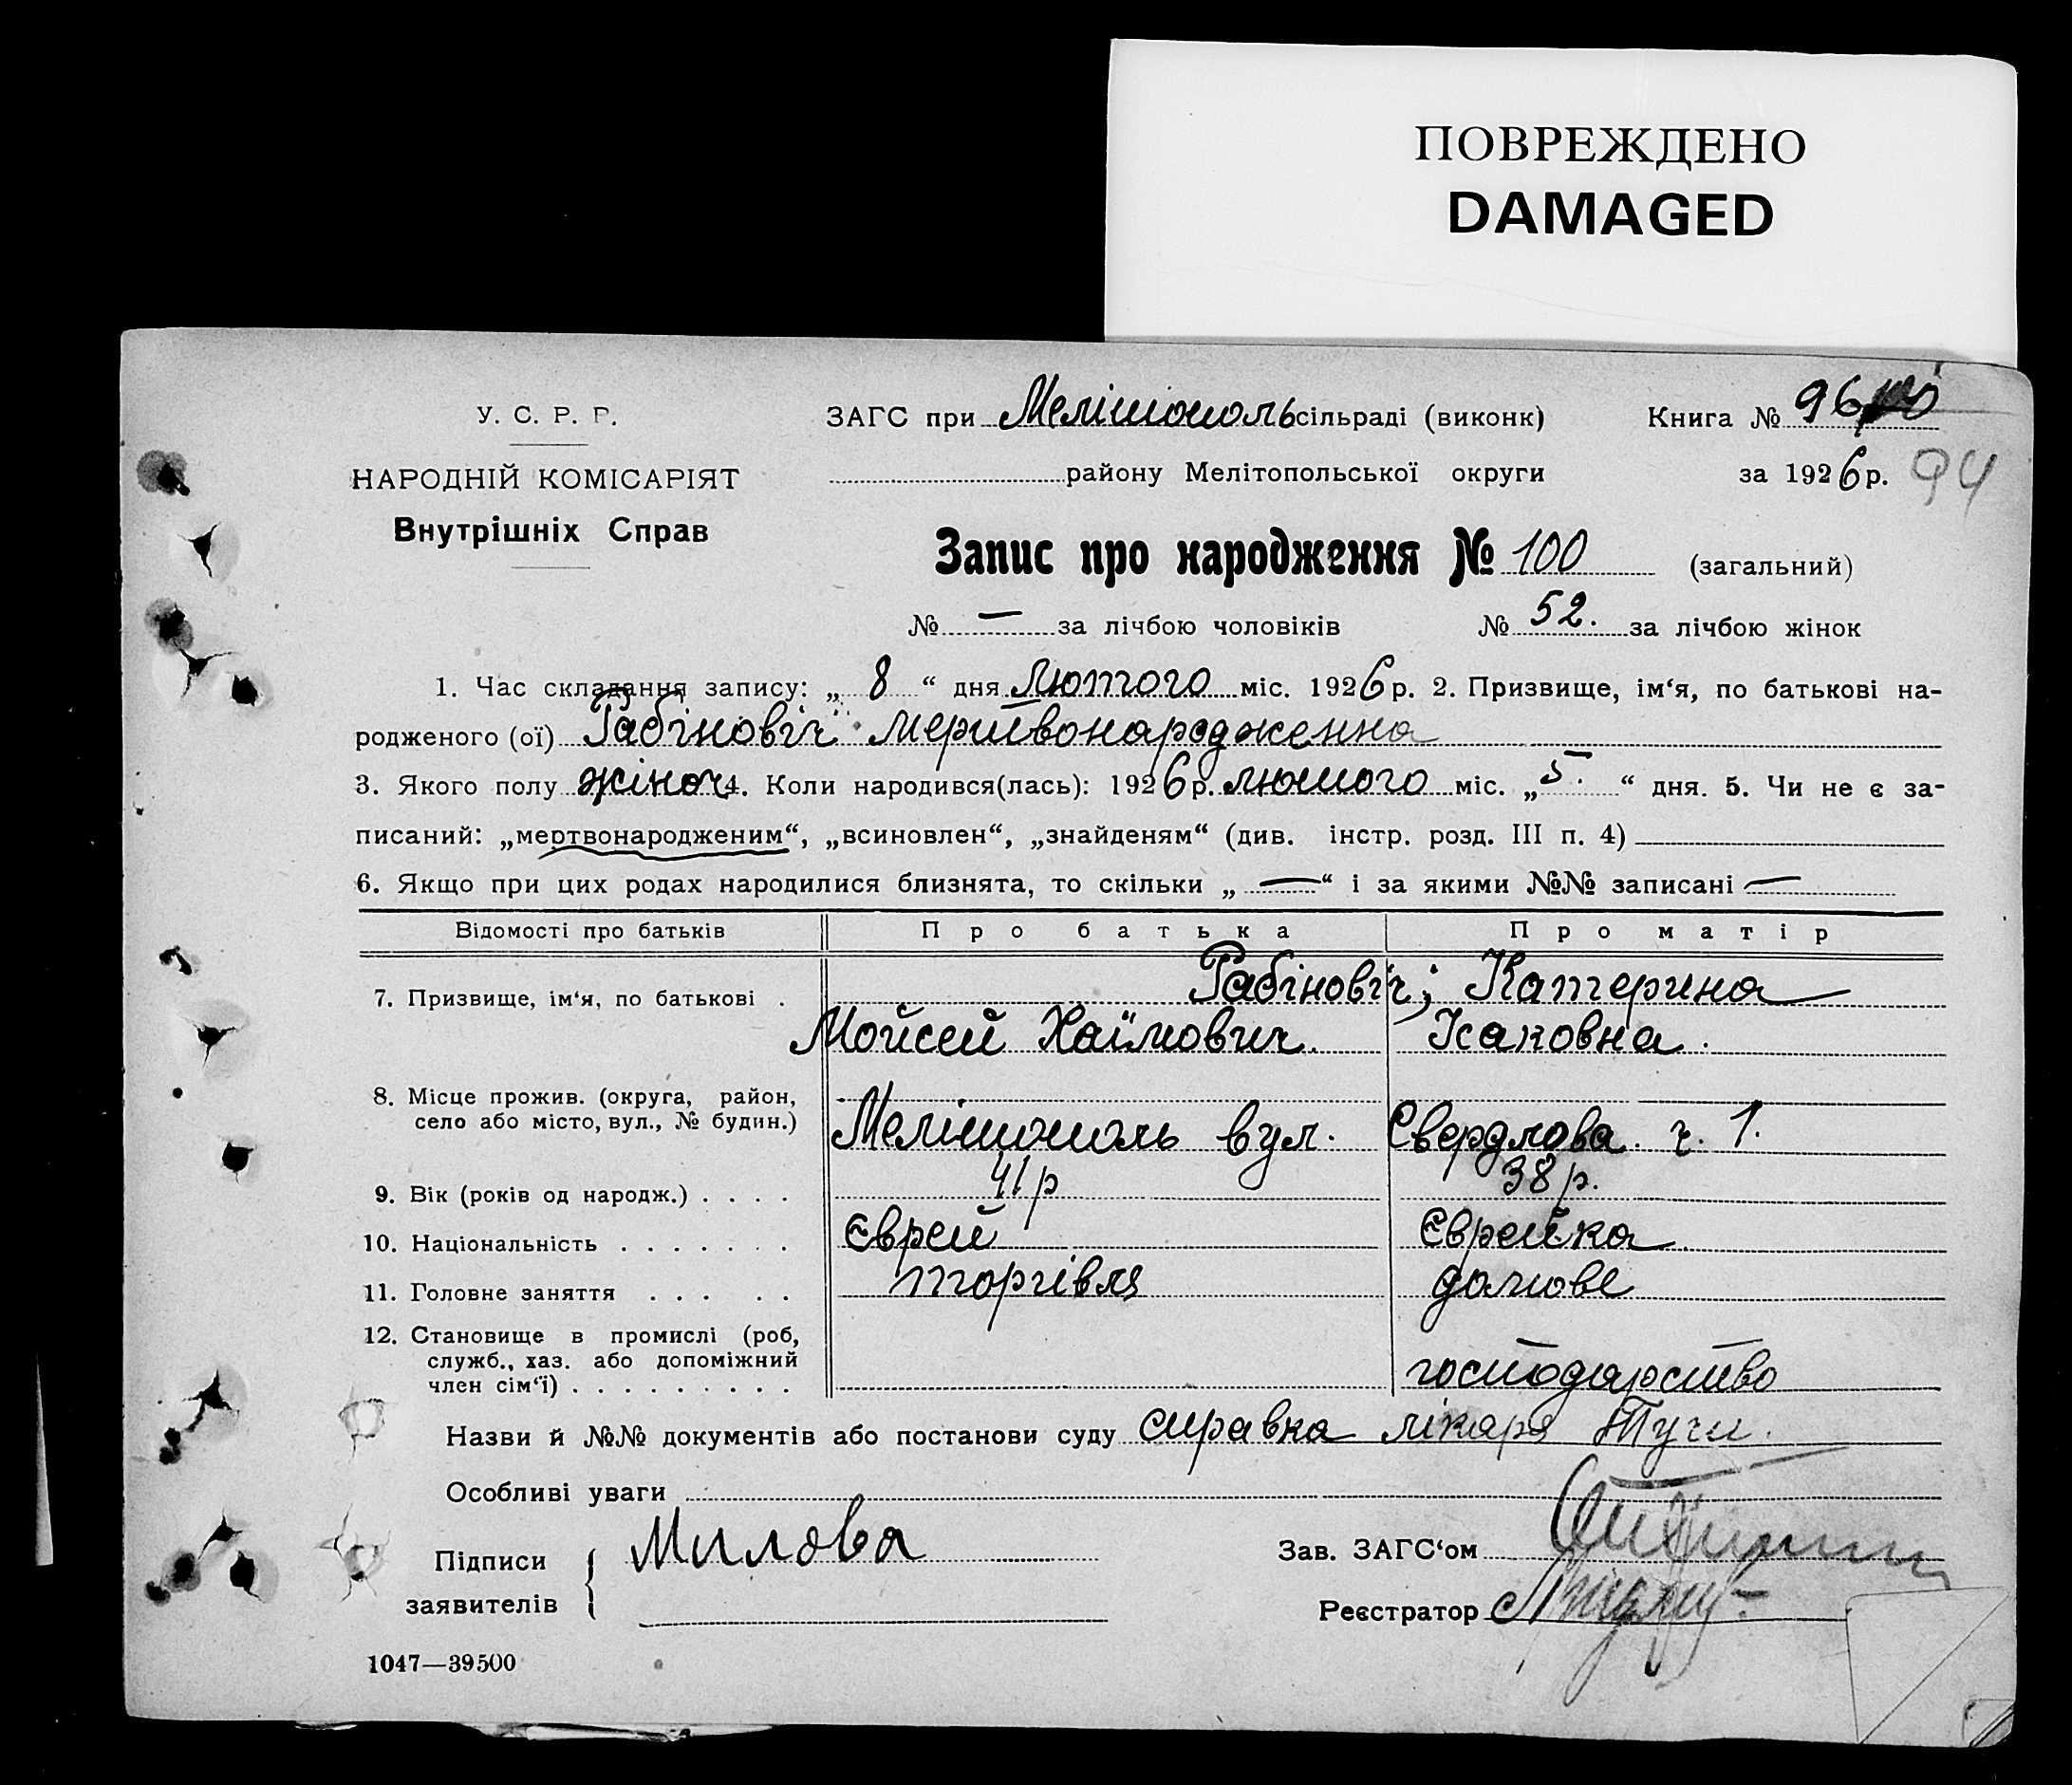 ПОВРЕЖДЕНО
DAMAGED
У. С. Р. Р.
НАРОДНІЙ КОМІСАРІЯТ
Внутрішніх Справ
ЗАГС при Мелітополь сільраді (виконк)
району Мелітопольської округи
Книга № 96
за 1926 р. 94
Запис про народження № 100 (загальний)
№ — за лічбою чоловіків № 52. за лічбою жінок
1. Час складання запису: „ 8 “ дня Лютого міс. 1926 р. 2. Призвище, ім‘я, по батькові на-
родженого (ої) Рабіновіч мертвонародженна
3. Якого полу жіноч 4. Коли народився(лась): 1926 р. лютого міс. „ 5. “ дня. 5. Чи не є за-
писаний: „мертвонародженим“, „всиновлен“, „знайденям“ (див. інстр. розд. III п. 4)
6. Якщо при цих родах народилися близнята, то скільки „ — “ і за якими №№ записані —
Відомості про батьків Про батька Про матір
7. Призвище, ім‘я, по батькові . Рабіновіч; Катерина
Мойсей Хаїмович. Ісаковна.
8. Місце прожив. (округа, район,
село або місто, вул., № будин.) Мелітополь вул. Свердлова. ч. 1.
9. Вік (років од народж.) . . . . 41 р 38 р.
10. Національність . . . . . . . Єврей Єврейка
11. Головне заняття . . . . . торгівля домове
12. Становище в промислі (роб,
служб., хаз. або допоміжний
член сім‘ї) . . . . . . . . . господарство
Назви й №№ документів або постанови суду справка лікаря Тучи.
Особливі уваги
Підписи
заявителів
Милова
Зав. ЗАГС‘ом
Реєстратор
1047—39500